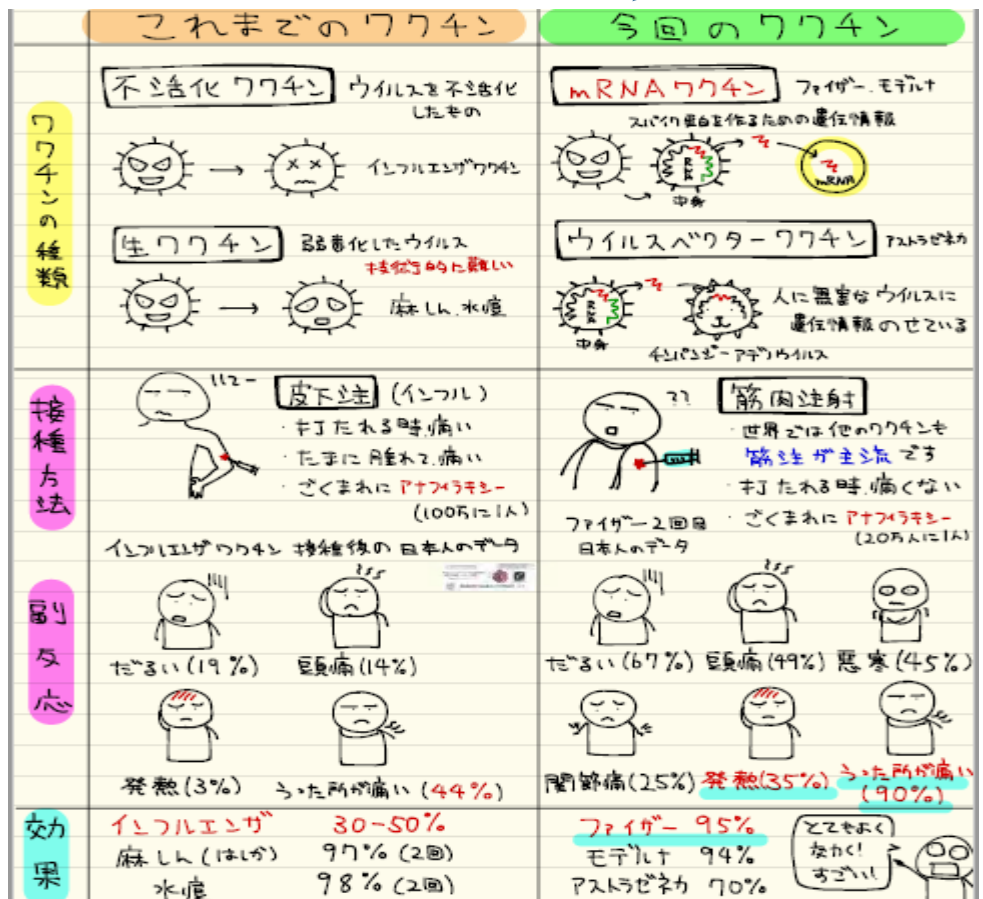 これまでのワクチン
今回のワクチン
ワクチンの種類
不活化ワクチン
ウイルスを不活化
したもの
インフルエンザワクチン
生ワクチン
弱毒化したウイルス
技術的に難しい
麻しん、水痘
mRNAワクチン
ファイザー、モデルナ
スパイク蛋白を作るための遺伝情報
RNA
中身
mRNA
ウイルスベクターワクチン
アストラゼネカ
RNA
中身
人に無害なウイルスに
遺伝情報のせている
チンパンジーアデノウイルス
接種方法
皮下注 (インフル)
・打たれる時、痛い
・たまに腫れて、痛い
・ごくまれに アナフィラキシー
(100万に1人)
??
筋肉注射
・世界では他のワクチンも
筋注が主流です
・打たれる時、痛くない
・ごくまれに アナフィラキシー
(20万人に1人)
副反応
インフルエンザワクチン 接種後の日本人のデータ
だるい(19%)
頭痛(14%)
発熱(3%)
うった所が痛い(44%)
ファイザー2回目
日本人のデータ
だるい(67%) 頭痛(49%) 悪寒(45%)
関節痛(25%) 発熱(35%) うった所が痛い
(90%)
効果
インフルエンザ 30-50%
麻しん(はしか) 97%(2回)
水痘 98%(2回)
ファイザー 95%
モデルナ 94%
アストラゼネカ 70%
とてもよく
効く!
すごい!